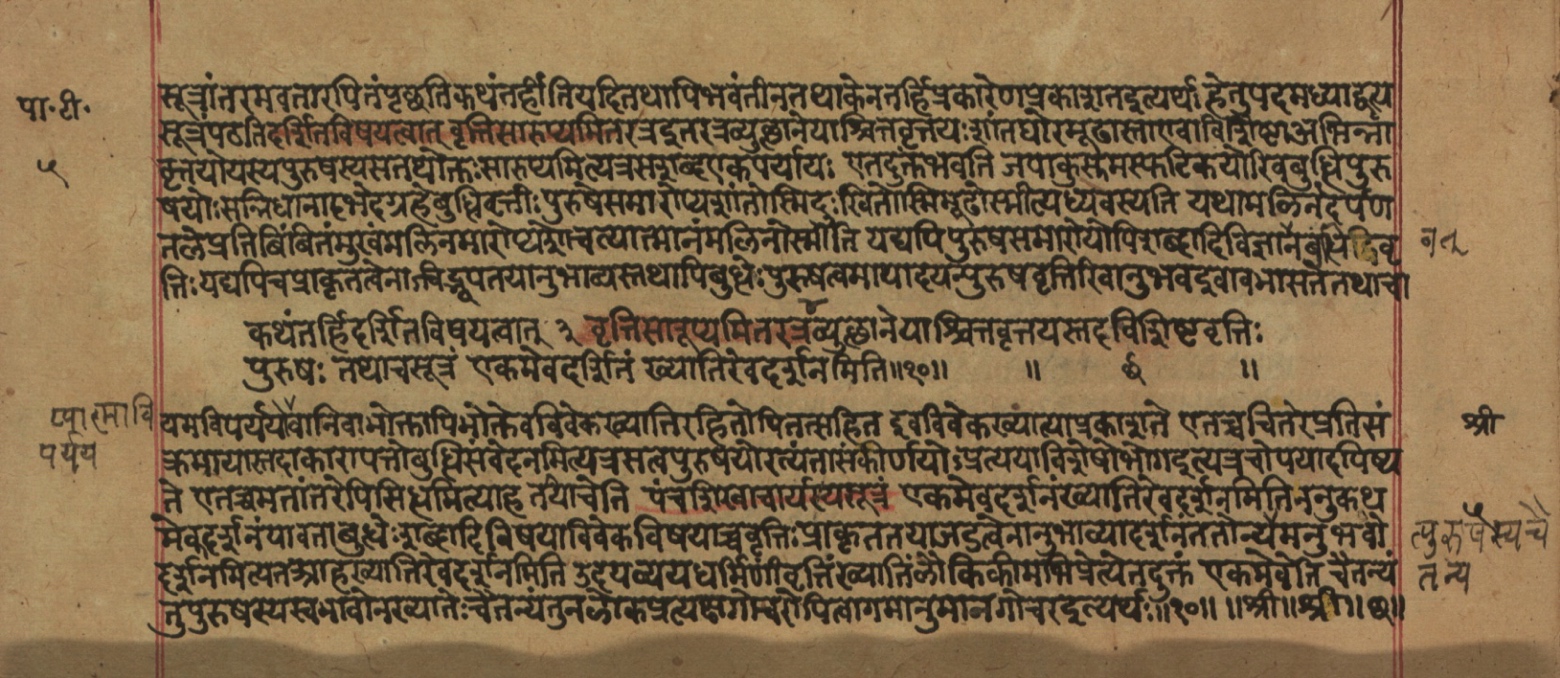 पा॰ टी॰
५
सूत्रांतरमवतारपितंपृछतिकथंतर्हीतियदितथापिभवंतीनतथाकेनतर्हिप्रकारेणप्रकाशतइत्यर्थः हेतुपदमध्याहृत्य
सूत्रंपठतिदर्शितविषयत्वात् वृत्तिसारुप्यमितरत्रइतरत्रव्युछानेयाश्चित्तवृत्तयःशांतघोरमूढास्ताएवाविशिष्टाअभिन्ना
वृत्तयोयस्यपुरुषस्यसतथोक्तःसारुप्यमित्यत्रसशब्दएकपर्यायः एतदुक्तंभवति जपाकुसुमस्फटिकयोरिवबुध्धिपुरु
षयोःसन्निधानादभेदग्रहेबुध्धिवृत्तीःपुरुषेसमारोप्यशांतोस्मिदुःखितोस्मिमूढोस्मीत्यध्यवस्यति यथामलिनेदर्पण
तलेप्रतिबिंबितंमुखंमलिनमारोप्यशोचत्यात्मानंमलिनोस्मीति यद्यपिपुरुषसमारोपोपिशब्दादिविज्ञानबुध्धिवृ
त्तिःयद्यपिचप्राकृतत्वेनाचिद्रूपतयानुभाव्यस्तथापिबुध्धेःपुरुषत्वमापादयन्पुरुषवृत्तिरिवानुभवइवावभासतेतथाचा
कथंतर्हिदर्शितविषयत्वात् ३ वृत्तिसारूप्यमितरत्रव्युछानेयाश्चित्तवृत्तयस्तदविशिष्टवृत्तिः
पुरुषः तथाचसूत्रं एकमेवदर्शनं ख्यातिरेवदर्शनमिति॥१०॥ ॥ ॥
प्यात्मावि
पर्यय
यमविपर्ययोवानिवाभोक्तापिभोक्तेवविवेकख्यातिरहितोपितत्सहित इवविवेकख्यात्याप्रकाशते एतच्चचितेरप्रतिसं
क्रमायास्तदाकारापत्तोबुध्धिसंवेदनमित्यत्रसत्वपुरुषयोरत्यंतासंकीर्णयोःप्रत्ययाविशेषोभोगइत्यत्रचोपपादयिष्य
ते एतच्चमतांतरेपिसिध्धमित्याह तथाचेति पंचशिखाचार्यस्यसूत्रं एकमेवदर्शनंख्यातिरेवदर्शनमितिननुकथ
मेकंदर्शनंयावताबुध्धेःशब्दादिविषयाविवेकविषयाचवृत्तिःप्राकृततयाजडत्वेनानुभाव्यादर्शनंततोन्यमनुभवो
दर्शनमित्यतआहख्यातिरेवदर्शनमिति उदयव्ययधर्मिणींवृत्तिंख्यातिंलौकिकीमभिप्रेत्येतदुक्तं एकमेवेति चैतन्यं
तुपुरुषस्यस्वभावोनख्यातेःचैतन्यंतुनलोकप्रत्यक्षगोचरोपित्वागमानुमानगोचरइत्यर्थः॥१०॥ ॥श्री॥श्री॥छ॥
श्री
त्पुरुषस्यचै
तन्य